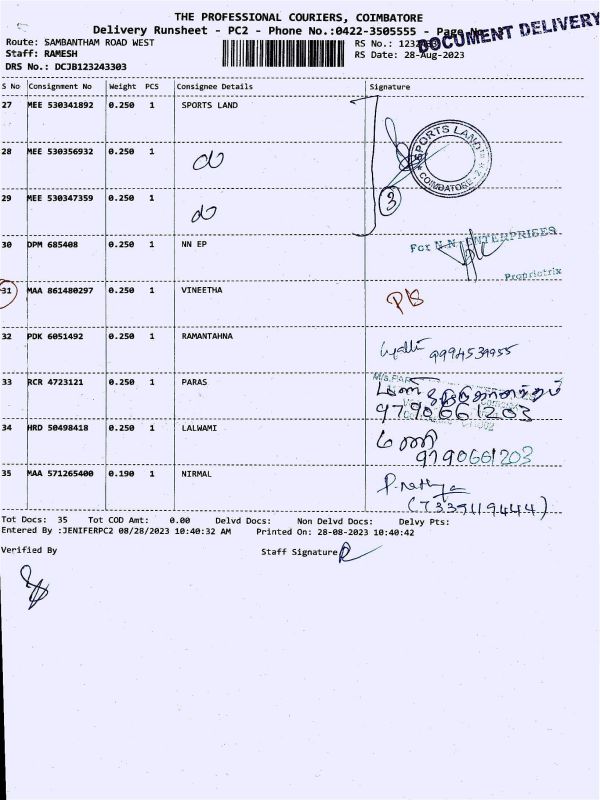 THE PROFESSIONAL COURIERS, COIMBATORE
Delivery Runsheet - PC2 - Phone No.:0422-3505555 - Page No.
DOCUMENT DELIVERY
Route: SAMBANTHAM ROAD WEST
RS No.: 1232
Staff: RAMESH
RS Date: 28-Aug-2023
DRS No.: DCJB123243303
S No Consignment No Weight PCS Consignee Details Signature
27 MEE 530341892 0.250 1 SPORTS LAND
SPORTS LAND
COIMBATORE - 2
28 MEE 530356932 0.250 1 do
29 MEE 530347359 0.250 1 do
3
30 DPM 685408 0.250 1 NN EP
For N.N. ENTERPRISES
Proprietrix
31 MAA 861480297 0.250 1 VINEETHA
32 PDK 6051492 0.250 1 RAMANTAHNA
9994539955
33 RCR 4723121 0.250 1 PARAS
9790661203
34 HRD 50498418 0.250 1 LALWAMI
மணி
9790661203
35 MAA 571265400 0.190 1 NIRMAL
Tot Docs: 35 Tot COD Amt: 0.00 Delvd Docs: Non Delvd Docs: Delvy Pts:
Entered By :JENIFERPC2 08/28/2023 10:40:32 AM Printed On: 28-08-2023 10:40:42
Verified By Staff Signature